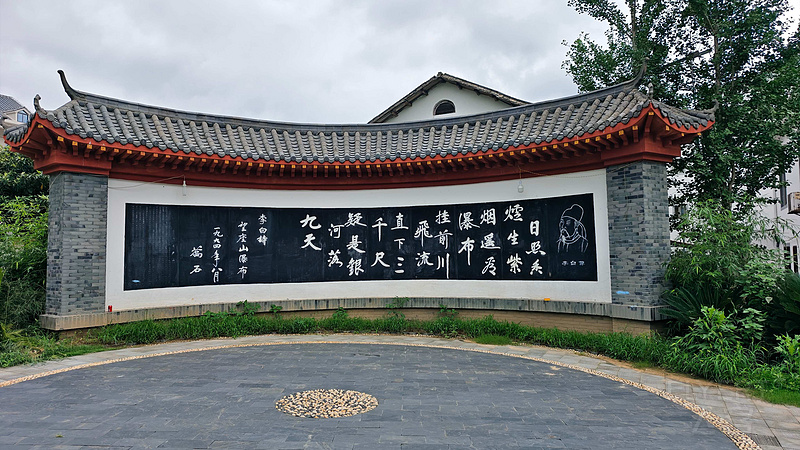 李白像
日照香
爐生紫
烟遥看
瀑布
挂前川
飛流
直下三
千尺
疑是銀
河落
九天
李白詩
望庐山瀑布
一九九四年八月